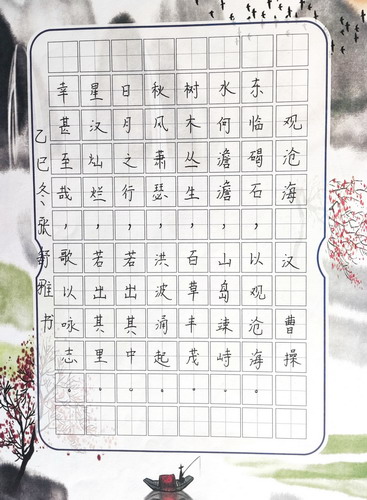 观沧海 汉 曹操
东临碣石，以观沧海。
水何澹澹，山岛竦峙。
树木丛生，百草丰茂。
秋风萧瑟，洪波涌起。
日月之行，若出其中。
星汉灿烂，若出其里。
幸甚至哉，歌以咏志。
乙巳冬、张舒雅书